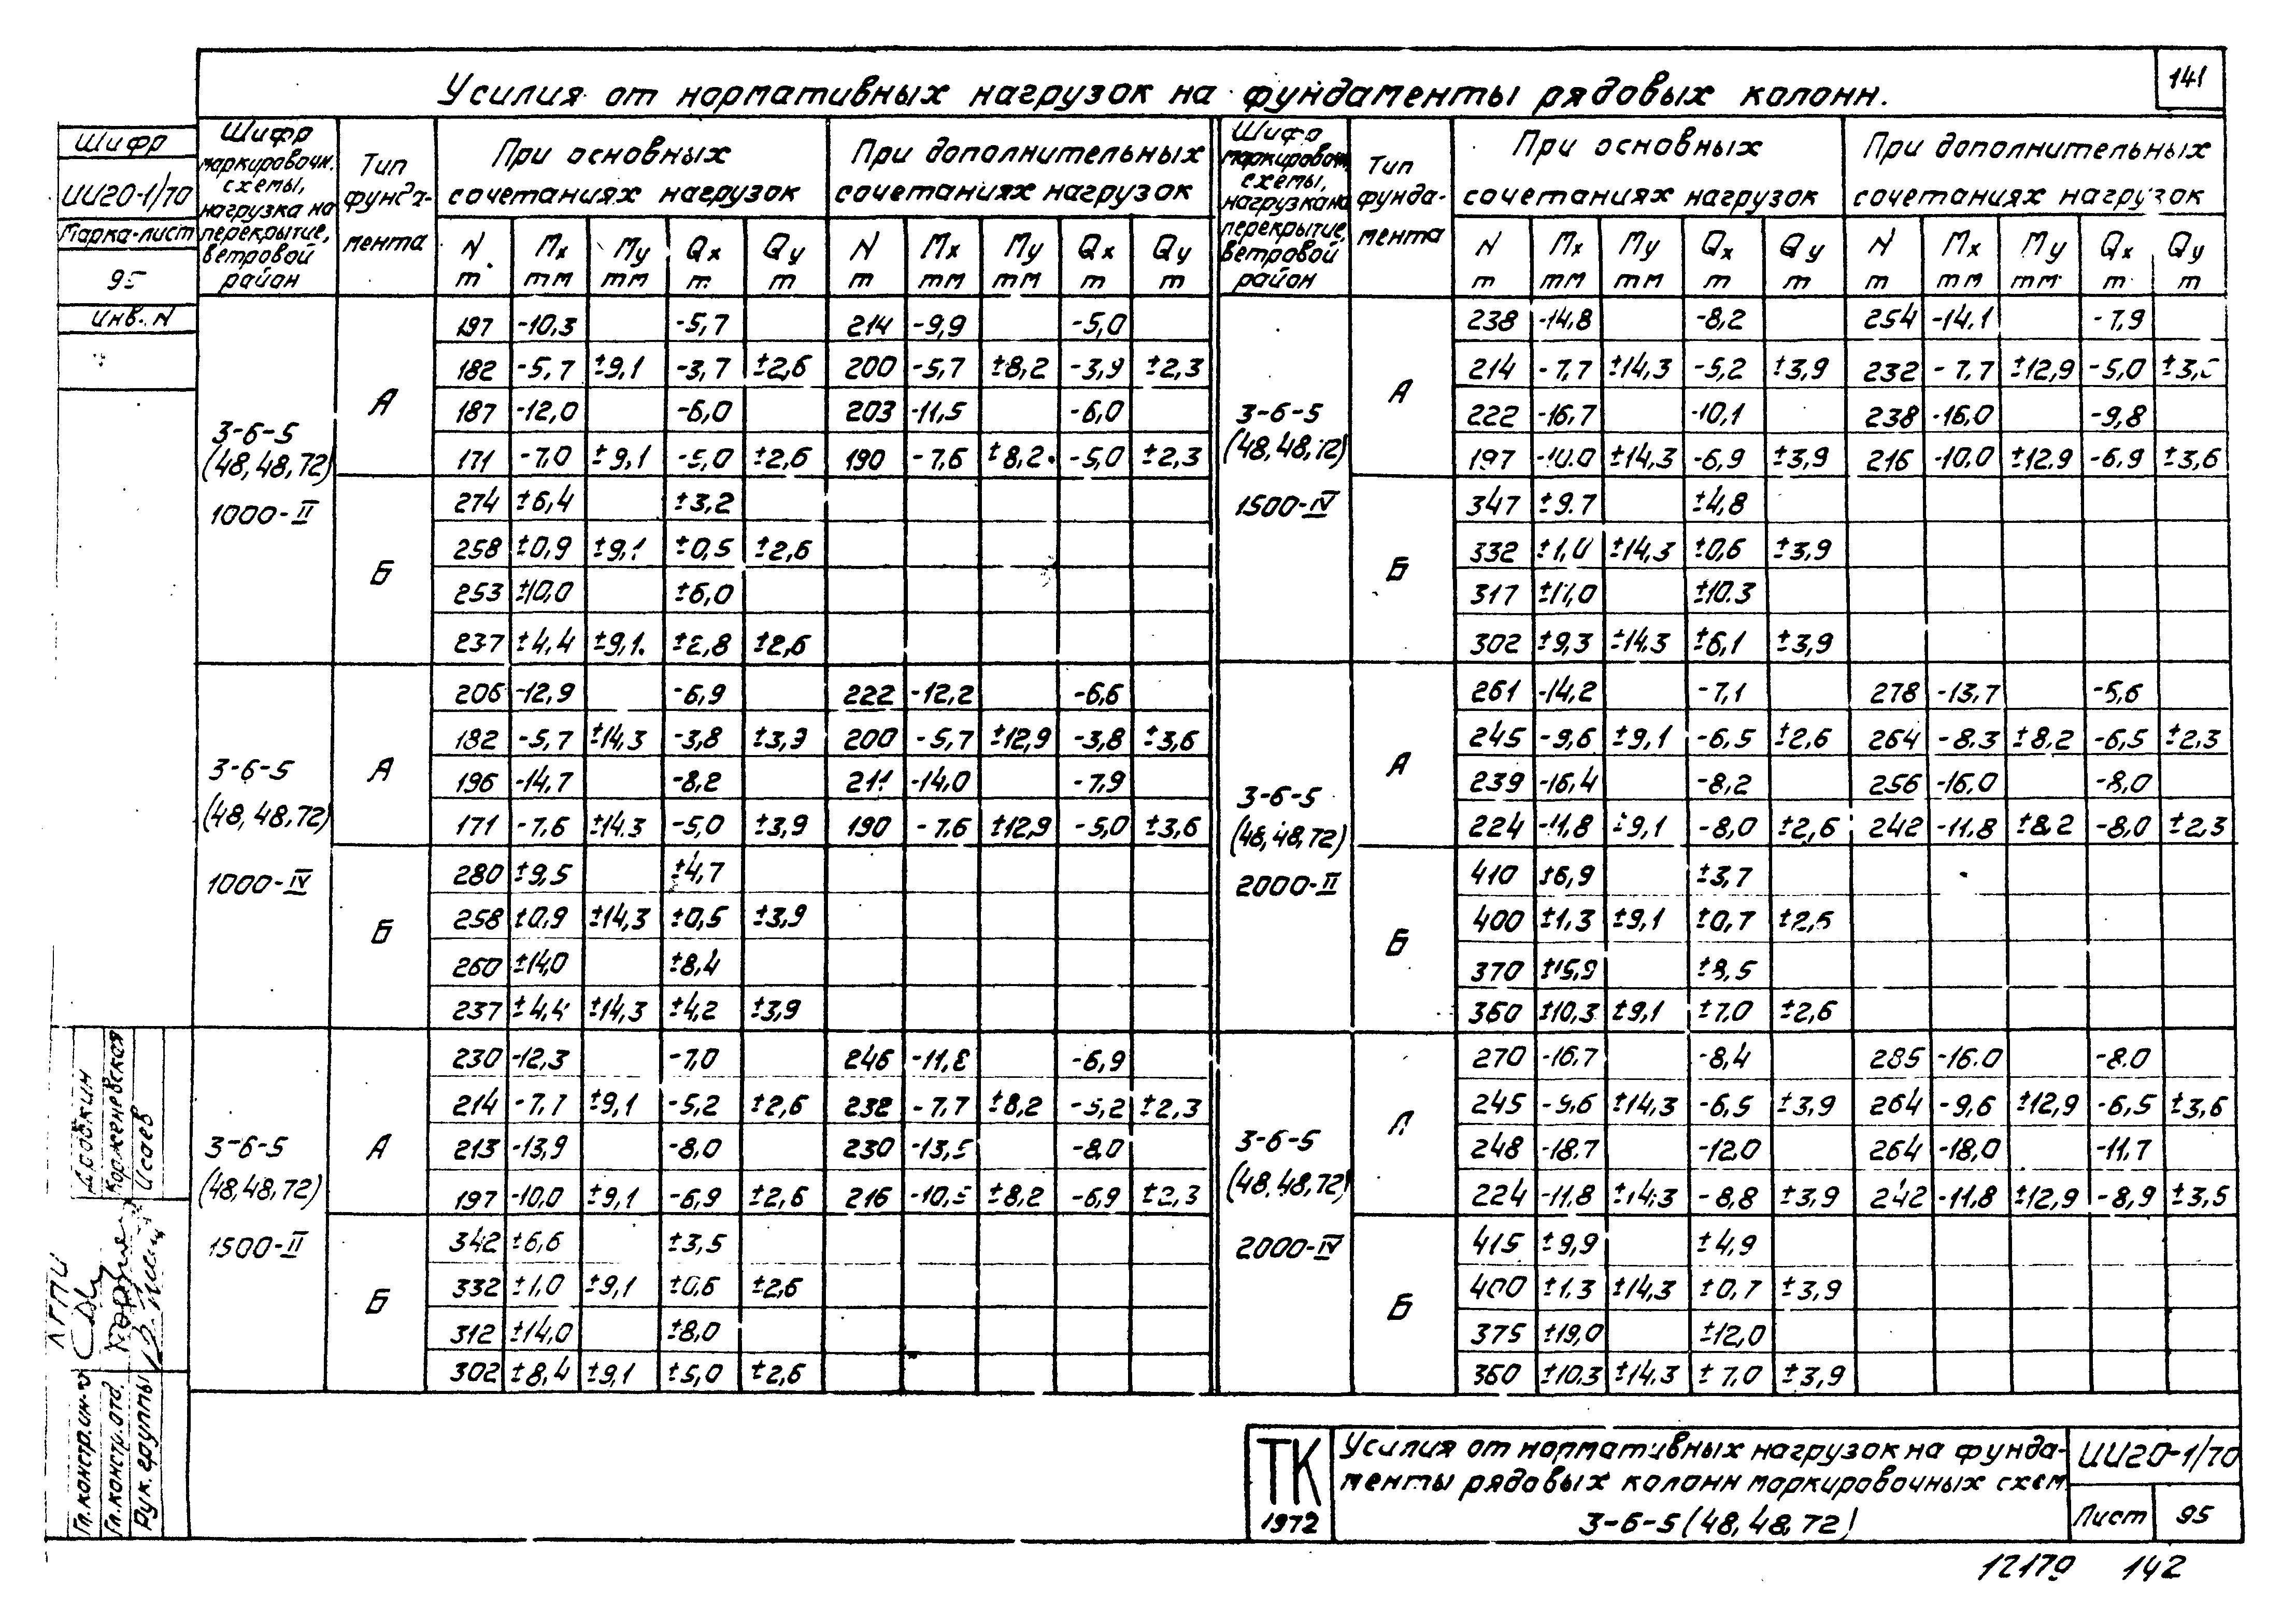 141
Усилия от нормативных нагрузок на фундаменты рядовых колонн.
Шифр
ИИ20-1/70
Марка-лист
95
Инв. N
Шифр маркировочн. схемы, нагрузка на перекрытие, ветровой район
Тип фундамента
При основных сочетаниях нагрузок
При дополнительных сочетаниях нагрузок
N т Mx тм My тм Qx т Qy т N т Mx тм My тм Qx т Qy т
3-6-5 (48,48,72) 1000-II
А
197 -10,3 -5,7 214 -9,9 -5,0
182 -5,7 ±9,1 -3,7 ±2,6 200 -5,7 ±8,2 -3,9 ±2,3
187 -12,0 -6,0 203 -11,5 -6,0
171 -7,0 ±9,1 -5,0 ±2,6 190 -7,6 ±8,2 -5,0 ±2,3
Б
274 ±6,4 ±3,2
258 ±0,9 ±9,1 ±0,5 ±2,6
253 ±10,0 ±6,0
237 ±4,4 ±9,1 ±2,8 ±2,6
3-6-5 (48,48,72) 1000-IV
А
206 -12,9 -6,9 222 -12,2 -6,6
182 -5,7 ±14,3 -3,8 ±3,9 200 -5,7 ±12,9 -3,8 ±3,6
196 -14,7 -8,2 211 -14,0 -7,9
171 -7,6 ±14,3 -5,0 ±3,9 190 -7,6 ±12,9 -5,0 ±3,6
Б
280 ±9,5 ±4,7
258 ±0,9 ±14,3 ±0,5 ±3,9
260 ±14,0 ±8,4
237 ±4,4 ±14,3 ±4,2 ±3,9
3-6-5 (48,48,72) 1500-II
А
230 -12,3 -7,0 246 -11,8 -6,9
214 -7,7 ±9,1 -5,2 ±2,6 232 -7,7 ±8,2 -5,2 ±2,3
213 -13,9 -8,0 230 -13,5 -8,0
197 -10,0 ±9,1 -6,9 ±2,6 216 ±8,2 -6,9 ±2,3
Б
342 ±6,6 ±3,5
332 ±1,0 ±9,1 ±0,6 ±2,6
312 ±14,0 ±8,0
302 ±8,4 ±9,1 ±5,0 ±2,6
Шифр маркировочн. схемы, нагрузка на перекрытие, ветровой район
Тип фундамента
При основных сочетаниях нагрузок
При дополнительных сочетаниях нагрузок
N т Mx тм My тм Qx т Qy т N т Mx тм My тм Qx т Qy т
3-6-5 (48,48,72) 1500-IV
А
238 -14,8 -8,2 254 -14,1 -7,9
214 -7,7 ±14,3 -5,2 ±3,9 232 -7,7 ±12,9 -5,0
222 -16,7 -10,1 238 -16,0 -9,8
197 -10,0 ±14,3 -6,9 ±3,9 216 -10,0 ±12,9 -6,9 ±3,6
Б
347 ±9,7 ±4,8
332 ±1,0 ±14,3 ±0,6 ±3,9
317 ±10,3
302 ±9,3 ±14,3 ±6,1 ±3,9
3-6-5 (48,48,72) 2000-II
А
261 -14,2 -7,1 278 -13,7 -5,6
245 -9,6 ±9,1 -6,5 ±2,6 264 -8,3 ±8,2 -6,5 ±2,3
239 -16,4 -8,2 256 -16,0 -8,0
224 -11,8 ±9,1 -8,0 ±2,6 242 -11,8 ±8,2 -8,0 ±2,3
Б
410 ±6,9 ±3,7
400 ±1,3 ±9,1 ±0,7 ±2,6
370 ±15,9 ±8,5
360 ±10,3 ±9,1 ±7,0 ±2,6
3-6-5 (48,48,72) 2000-IV
А
270 -16,7 -8,4 285 -16,0 -8,0
245 -9,6 ±14,3 -6,5 ±3,9 264 -9,6 ±12,9 -6,5 ±3,6
248 -18,7 -12,0 264 -18,0 -11,7
224 -11,8 ±14,3 -8,8 ±3,9 242 -11,8 ±12,9 -8,9 ±3,5
Б
415 ±9,9 ±4,9
400 ±1,3 ±14,3 ±0,7 ±3,9
375 ±19,0 ±12,0
360 ±10,3 ±14,3 ±7,0 ±3,9
Гл. констр. ин-та
Гл. констр. отд. Корженевская
Рук. группы Исаев
ТК
1972
Усилия от нормативных нагрузок на фунда-
менты рядовых колонн маркировочных схем
3-6-5 (48,48,72)
ИИ20-1/70
Лист 95
12179 142